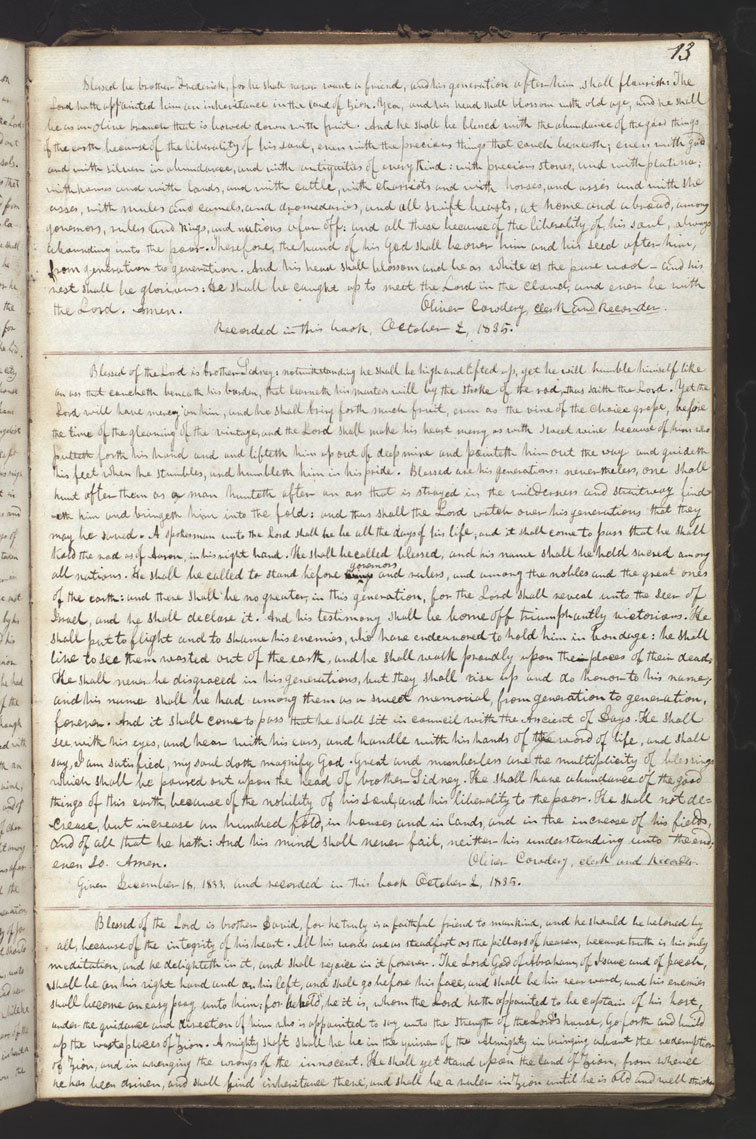 13
Blessed be brother Frederick, for he shall never want a friend, and his generation after him shall flourish. The
Lord hath appointed him an inheritance in the land of Zion. Yea, and his head shall blossom with old age, and he shall
be as an olive branch that is bowed down with fruit. And he shall be blessed with the abundance of the good things
of the earth because of the liberality of his soul, even with the precious things that couch beneath; even with gold
and with silver in abundance, and with antiquities of every kind: with precious stones, and with platina;
with houses and with lands, and with cattle, with chariots and with horses, and asses and with she
asses, with mules and camels, and dromedaries, and all swift beasts, at home and abroad, among
governors, rulers and kings, and nations afar off: and all these because of the liberality of his soul, always
abounding unto the poor. Therefore, the hand of his God shall be over him and his seed after him,
from generation to generation. And his head shall blossom and be as white as the pure wool – and his
rest shall be glorious: He shall be caught up to meet the Lord in the cloud, and ever be with
the Lord. Amen. Oliver Cowdery, clerk and Recorder.
Recorded in this book, October 2, 1835.
Blessed of the Lord is brother Sidney: notwithstanding he shall be high and lifted up, yet he will humble himself like
an ass that coucheth beneath his burden, that learneth his master's will by the stroke of the rod, thus saith the Lord. Yet the
Lord will have mercy on him, and he shall bring forth much fruit, even as the vine of the choice grape, before
the time of the gleaning of the vintage, and the Lord shall make his heart merry as with sweet wine because of him who
putteth forth his hand and and lifteth him up out of deep mire and pointeth him out the way and guideth
his feet when he stumbles, and humbleth him in his pride. Blessed are his generations: nevertheless, one shall
hunt after them as a man hunteth after an ass that is strayed in the wilderness and straitway find
eth him and bringeth him into the fold: and thus shall the Lord watch over his generations that they
may be saved. A spokesman unto the Lord shall he be all the days of his life, and it shall come to pass that he shall
hold the rod as of Aaron, in his right hand. He shall be called blessed, and his name shall be held sacred among
governors
all nations. He shall be called to stand before and rulers, and among the nobles and the great ones
of the earth: and there shall be no greater, in this generation, for the Lord shall reveal unto the seer of
Israel, and he shall declare it. And his testimony shall be borne off triumphantly victorious. He
shall put to flight and to shame his enemies, who have endeavored to hold him in bondage: he shall
live to see them wasted out of the earth, and he shall walk proudly upon the places of their dead,
He shall never be disgraced in his generations, but they shall rise up and do honor to his name,
and his name shall be had among them as a sweet memorial, from generation to generation,
forever. And it shall come to pass that he shall sit in council with the Ancient of Days. He shall
see with his eyes, and hear with his ears, and handle with his hands of the word of life, and shall
say, I am satisfied, my soul doth magnify God. Great and numberless are the multiplicity of blessings
which shall be poured out upon the head of brother Sidney. He shall have abundance of the good
things of this earth, because of the nobility of his soul, and his liberality to the poor. He shall not de=
crease, but increase an hundred fold, in houses and in lands, and in the increase of his fields,
and of all that he hath: And his mind shall never fail, neither his understanding unto the end,
even so. Amen. Oliver Cowdery, clerk and Recorder.
Given December 18, 1833, and recorded in this book October 2, 1835.
Blessed of the Lord is brother David, for he truly is a faithful friend to mankind, and he should be beloved by
all, because of the integrity of his heart. All his words are as steadfast as the pillars of heaven, because truth is his only
meditation, and he delighteth in it, and shall rejoice in it forever. The Lord God of Abraham, of Isaac and of Jacob,
shall be on his right hand and on his left, and shall go before his face, and shall be his rear ward, and his enemies
shall become an easy prey unto him; for behold, he it is, whom the Lord hath appointed to be captain of his host,
under the guidance and direction of him who is appointed to say unto the strength of the Lord's house, Go forth and build
up the waste places of Zion. A mighty shaft shall he be in the quiver of the Almighty in bringing about the redemption
of Zion, and in avenging the wrongs of the innocent. He shall yet stand upon the land of Zion, from whence
he has been driven, and shall find inheritance there, and shall be a ruler in Zion until he is old and well stricken